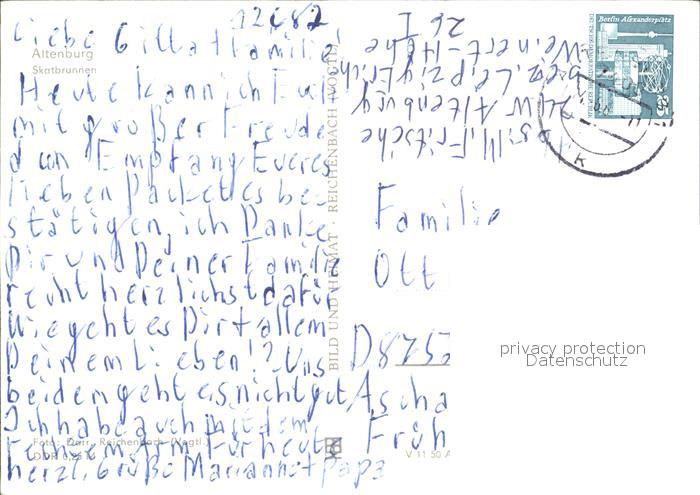 12682
Liebe Gitta + Familie!
Altenburg
Skatbrunnen
Heute kann ich Euch
mit großer Freude
d un Empfang Eueres
lieben Packetes be-
stätigen, ich Danke
Dir und Deiner Familie
recht herzlichst dafür
Wie geht es Dir + allem
Deinem Lieben!? Uns
beiden geht es nicht gut
Ich habe auch mit dem
rechtem Arm Für heute
herzl. Grüße Marianne + Papa
Foto: Darr, Reichenbach (Vogtl.)
DDR
BILD UND HEIMAT · REICHENBACH (VOGTL)
V 11 50 A
M. Fritsche
7400 Altenburg
bei Leipzig Erich
Weinert-Höhe
26 I
Berlin Alexanderplatz
K
Familie
Ott
D 875
Ascha
Früh
privacy protection
Datenschutz